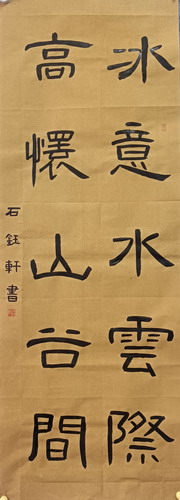 冰意水雲際
高懷山谷間
石鈺軒書